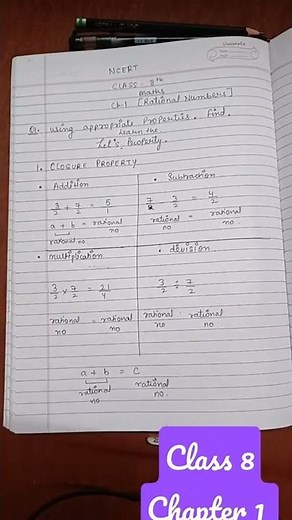 NCERT
CLASS - 8th
Maths
Ch-1 [Rational Numbers]
Q1. Using appropriate Properties. Find.
Learn the
Let's Property.
1. CLOSURE PROPERTY
• Addition
3/2 + 7/2 = 5/1
a + b = rational no
rational no.
• Subtraction
7/2 3/2 = 4/2
rational no = rational no.
• multiplication
3/2 x 7/2 = 21/4
rational no = rational no
• division
3/2 ÷ 7/2
rational no rational no
a + b = C
rational no. rational no.
Class 8
Chapter 1